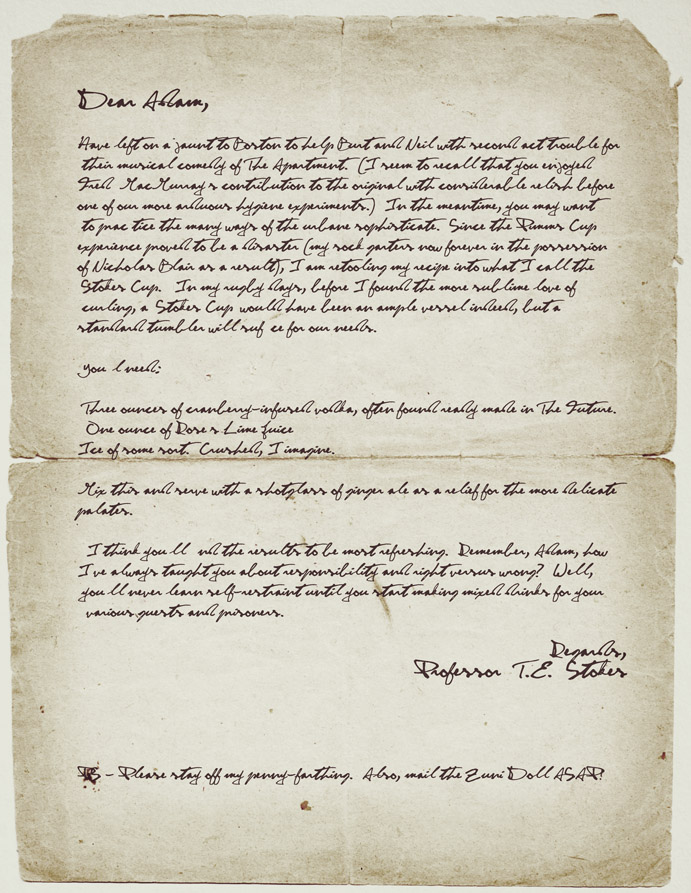 Dear Adam,
Have left on a jaunt to Boston to help Burt and Neil with second act trouble for
their musical comedy of The Apartment. (I seem to recall that you enjoyed
Fred MacMurray's contribution to the original with considerable relish before
one of our more arduous hygiene experiments.) In the meantime, you may want
to practice the many ways of the urbane sophisticate. Since the Pimms Cup
experience proved to be a disaster (my sock garters now forever in the possession
of Nicholas Blair as a result), I am retooling my recipe into what I call the
Stokes Cup. In my rugby days, before I found the more sublime love of
curling, a Stokes Cup would have been an ample vessel indeed, but a
standard tumbler will suf ce for our needs.
you l need:
Three ounces of cranberry-infused vodka, often found ready made in The Future.
One ounce of Rose s Lime Juice
Ice of some sort. Crushed, I imagine.
Mix this and serve with a shotglass of ginger ale as a relief for the more delicate
palates.
I think you ll nd the results to be most refreshing. Remember, Adam, how
I've always taught you about responsibility and right versus wrong? Well,
you ll never learn self-restraint until you start making mixed drinks for your
various guests and prisoners.
Regards,
Professor T.E. Stokes
PS - Please stay off my penny-farthing. Also, mail the Zuni Doll ASAP.